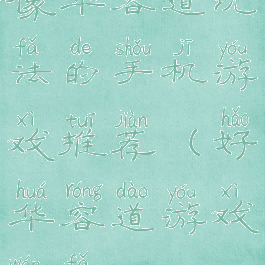 像华容道玩
fǎ de shǒu jī yóu
法的手机游
xì tuī jiàn hǎo
戏推荐（好
huá róng dào yóu xì
华容道游戏
wán fǎ